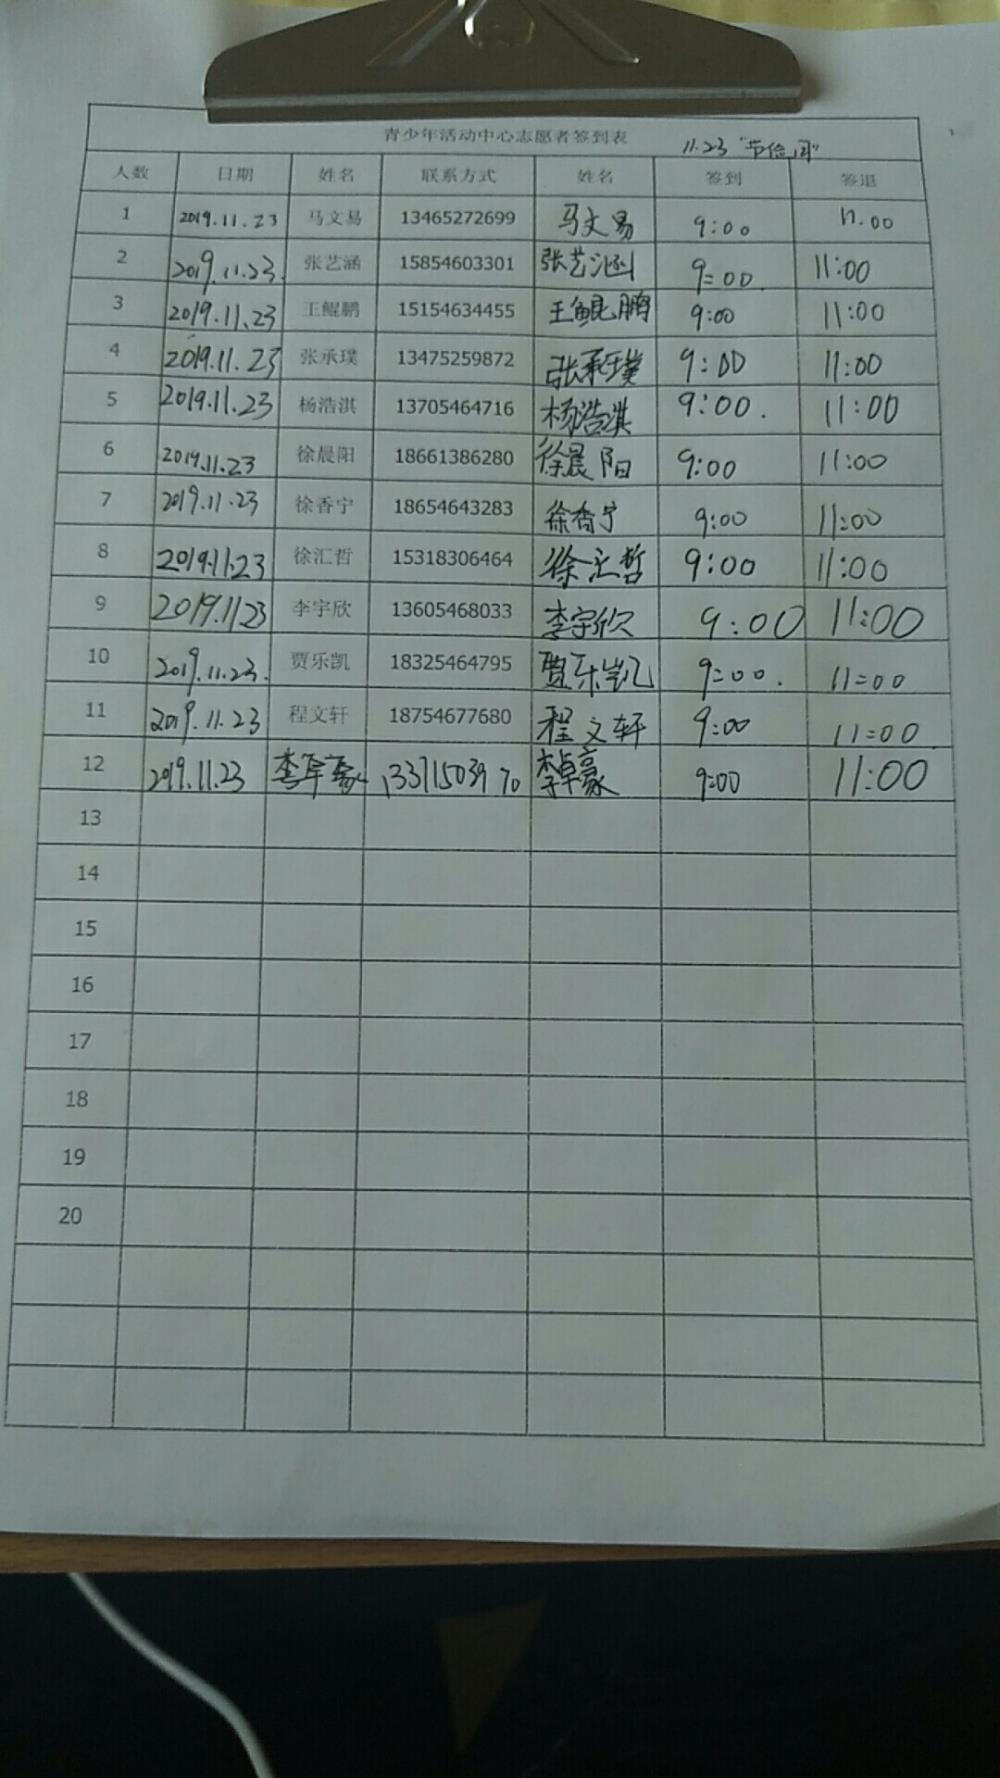 青少年活动中心志愿者签到表 11.23 "节俭周"
人数 日期 姓名 联系方式 姓名 签到 签退
1 2019.11.23 马文易 13465272699 马文易 9:00 11.00
2 2019.11.23. 张艺涵 15854603301 张艺涵 9:00. 11:00
3 2019.11.23 王鲲鹏 15154634455 王鲲鹏 9:00 11:00
4 2019.11.23 张承璞 13475259872 张承璞 9:00 11:00
5 2019.11.23 杨浩淇 13705464716 杨浩淇 9:00. 11:00
6 2019.11.23 徐晨阳 18661386280 徐晨阳 9:00 11:00
7 2019.11.23 徐香宁 18654643283 徐香宁 9:00 11:00
8 2019.11.23 徐汇哲 15318306464 徐汇哲 9:00 11:00
9 2019.1123 李宇欣 13605468033 李宇欣 9:00 11:00
10 2019.11.23. 贾乐凯 18325464795 贾乐凯 9:00. 11:00
11 2019.11.23 程文轩 18754677680 程文轩 9:00 11:00.
12 2019.11.23 李卓豪 13371503970 李卓豪 9:00 11:00
13
14
15
16
17
18
19
20